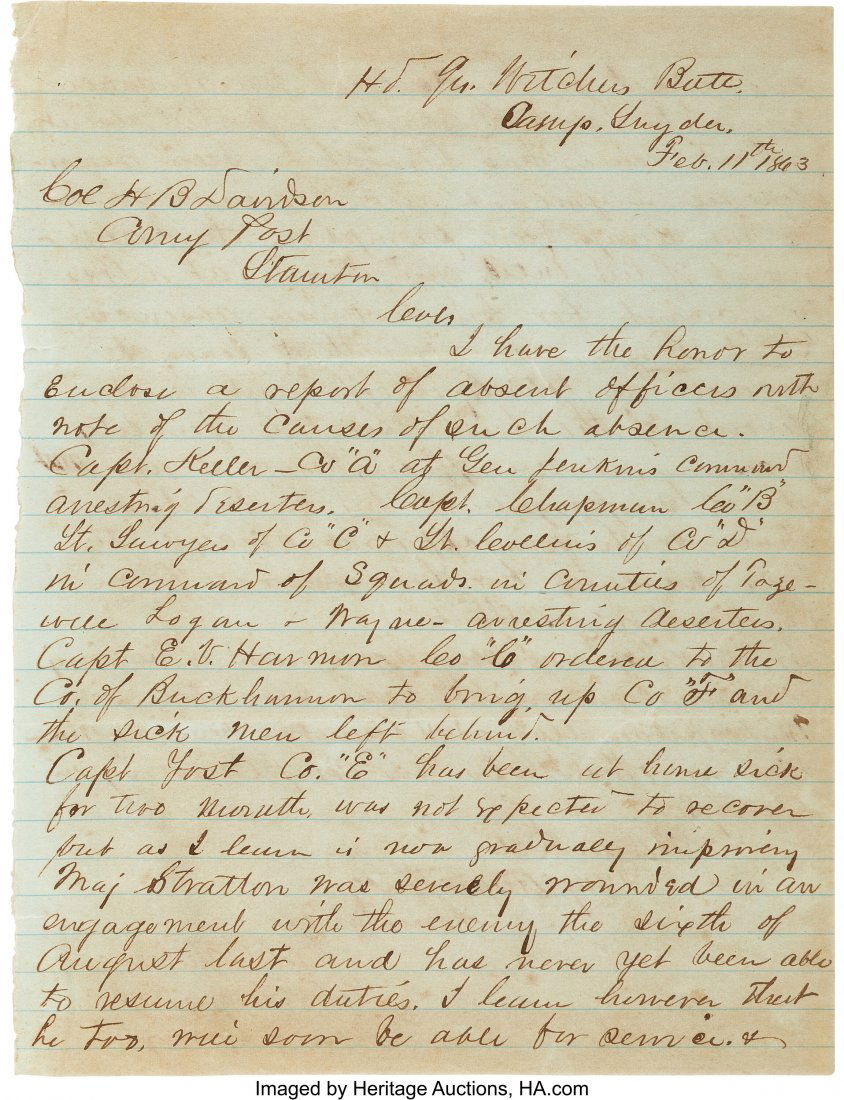 Hd. Qr. Witchers Batt.
Camp. Snyder.
Feb. 11th 1863
Col H B Davidson
Comg Post
Staunton
I have the honor to
Enclose a report of absent officers with
note of the causes of such absence.
Capt. Keller - Co "A" at Gen Jenkins command
arresting deserters. Capt. Chapman Co "B"
Lt. Sawyers of Co "C" & Lt. Collins of Co "D"
in command of Squads. in counties of Taze-
well Logan & Wayne - arresting deserters.
Capt E. V. Harmon Co "C" ordered to the
Co. of Buckhannon to bring up Co "F" and
the sick men left behind.
Capt Yost Co. "E" has been at home sick
for two month, was not expected to recover
but as I learn is now gradually improving
Maj Stratton was severely wounded in an
engagement with the enemy the sixth of
August last and has never yet been able
to resume his duties. I learn however that
he too, will soon be able for service. &
Imaged by Heritage Auctions, HA.com